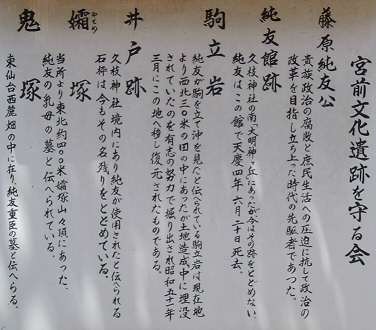 宮前文化遺跡を守る会
藤原純友公
貴族政治の腐敗と庶民生活への圧迫に抗して政治の
改革を目指し立ち上った時代の先駆者であった。
純友館跡
久枝神社の南「大明神ヶ丘」にあったが今はその跡をとどめない。
純友はこの館で天慶四年六月二十日死去。
駒立岩
純友が駒を立て沖を見たと伝へられている駒立岩は現在地
より西北三〇米の田の中にあったが土地造成中に埋没
されていたのを有志の努力で堀り出され昭和五十一年
三月にこの地へ移し復元されたものである。
井戸跡
久枝神社境内にあり純友が使用されたと伝へられる
石枠は今もその名残りをとどめている。
嬬塚
かとめ
当所より東北約四〇〇米嬬塚山々頂にあった。
純友の乳母の墓と伝へられている。
鬼塚
東仙台西麓畑の中に在り純友重臣の墓と伝へらる。